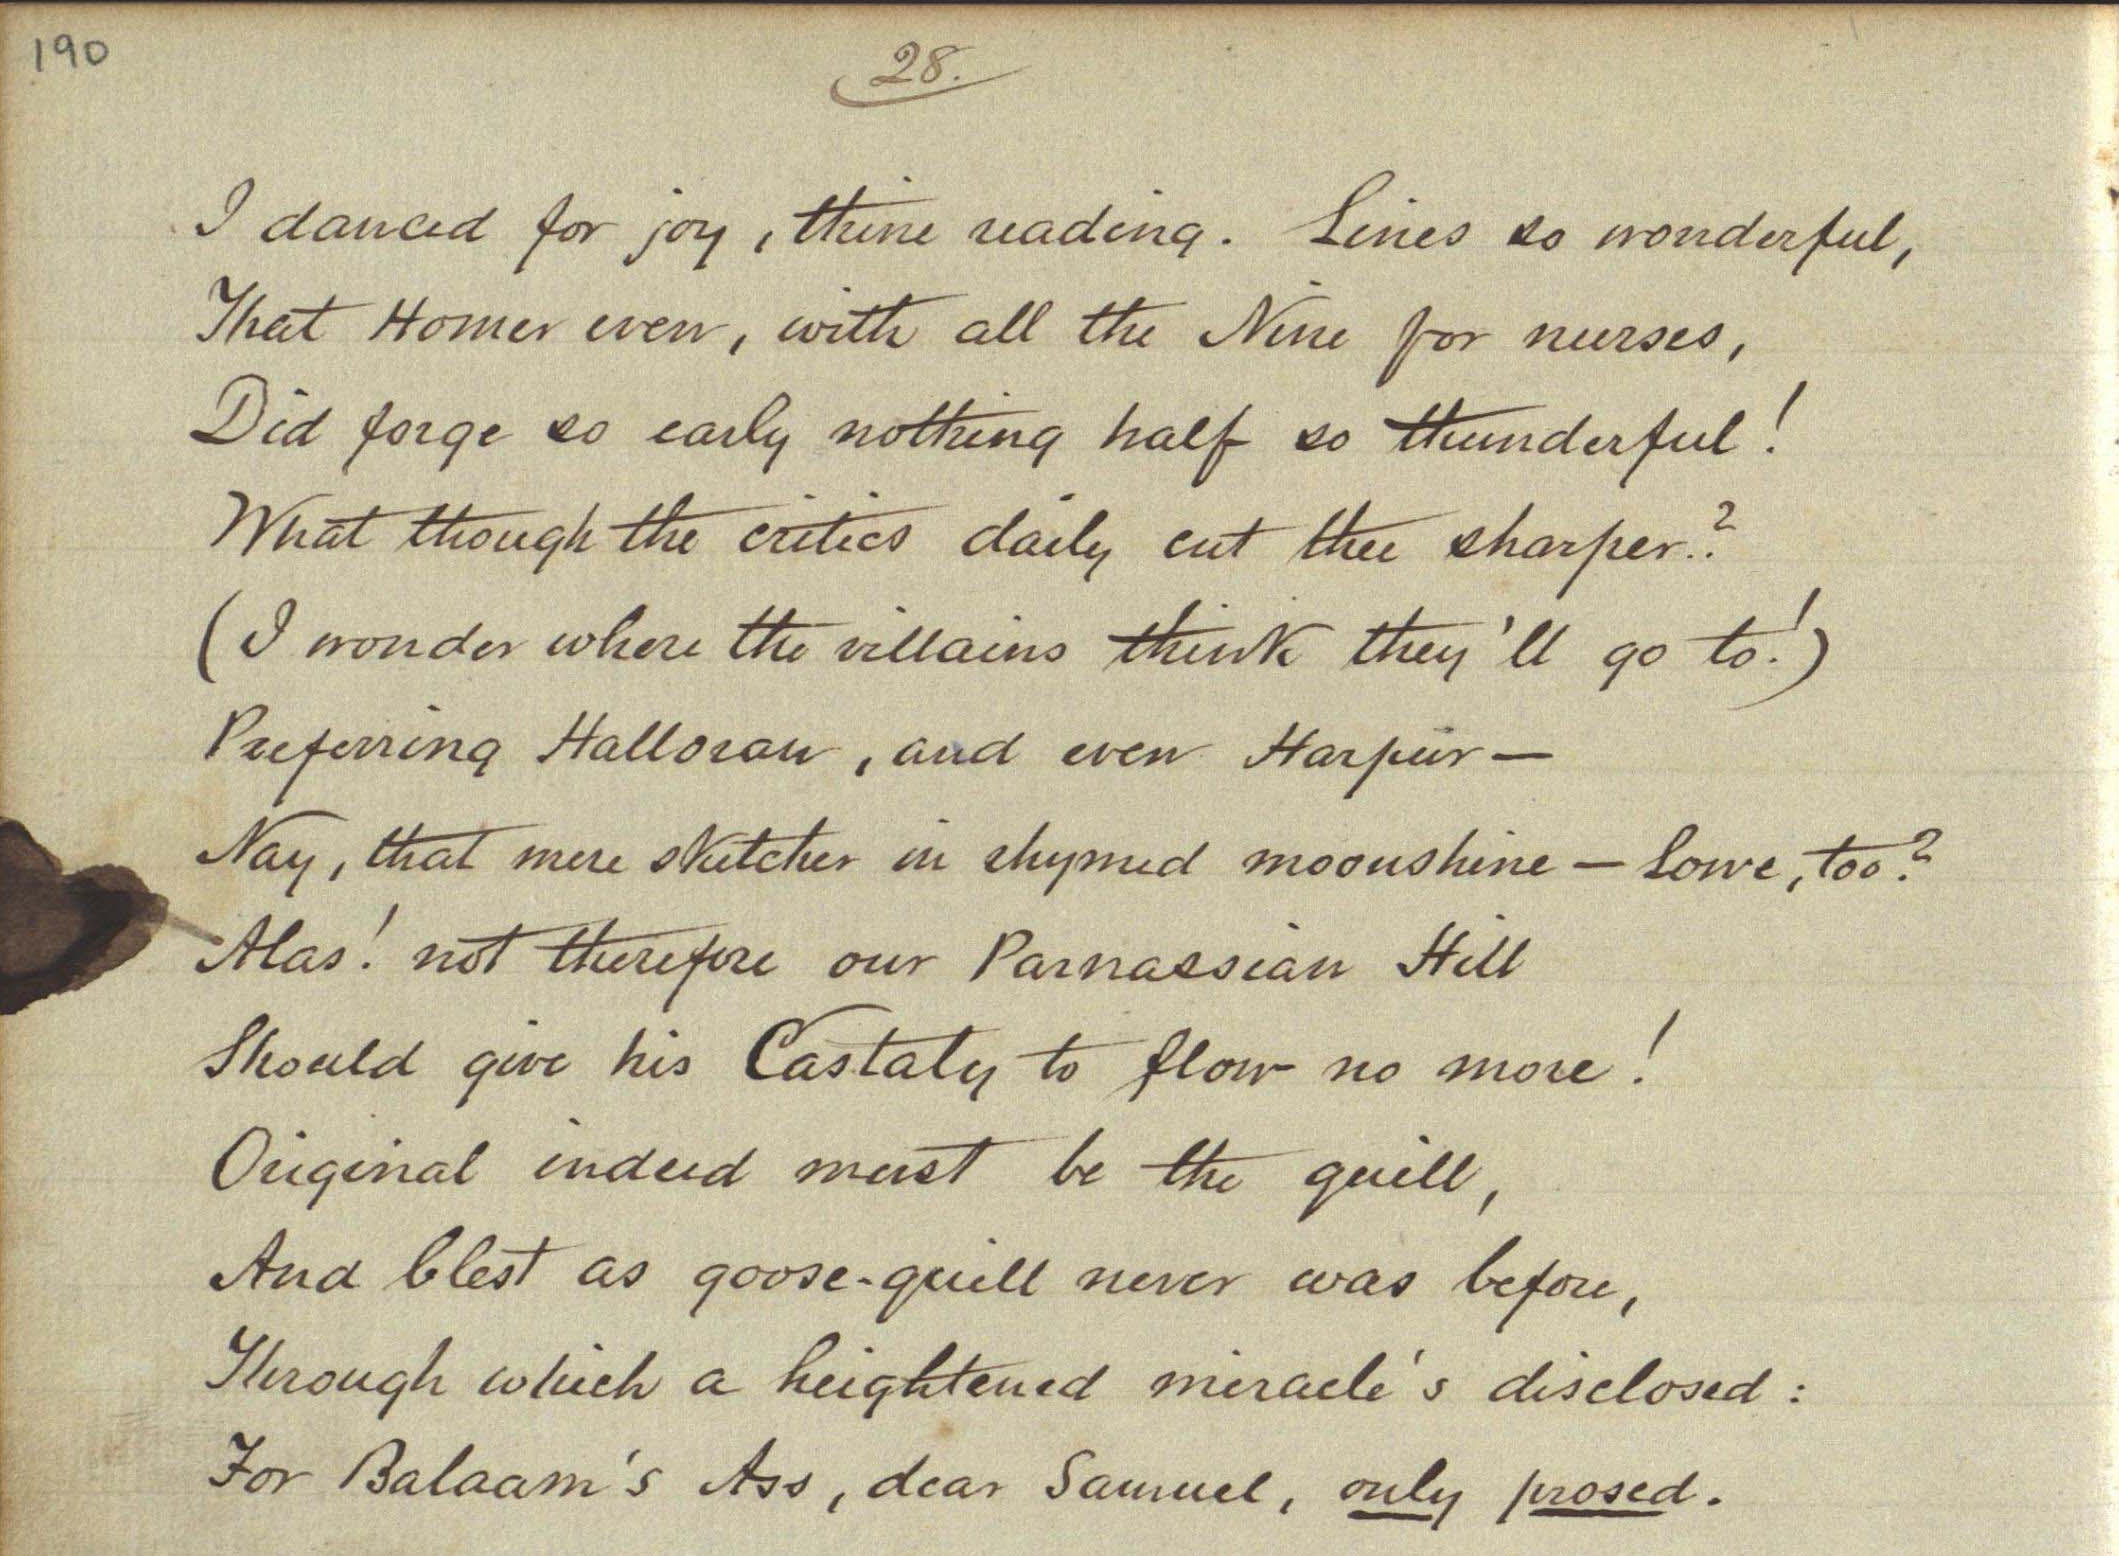 190
28.
I danced for joy, thine reading. Lines so wonderful,
That Homer even, with all the Nine for nurses,
Did forge so early nothing half so thunderful!
What though the critics daily cut thee sharper?
(I wonder where the villains think they'll go to!)
Preferring Halloran, and even Harpur—
Nay, that mere sketcher in rhymed moonshine — Lowe, too?
Alas! not therefore our Parnassian Hill
Should give his Castaly to flow no more!
Original indeed must be the quill,
And blest as goose-quill never was before,
Through which a heightened miracle's disclosed:
For Balaam's Ass, dear Samuel, only prosed.